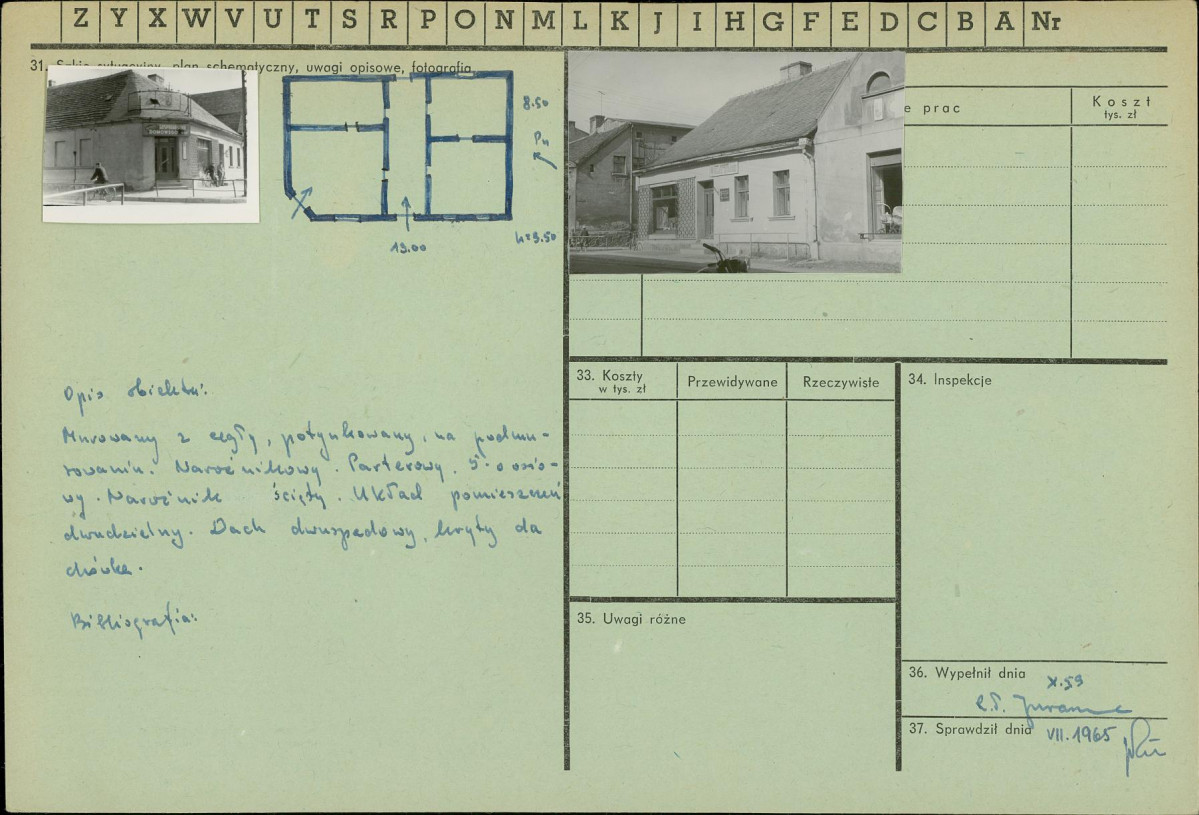 Z Y X W V U T S R P O N M L K J I H G F E D C B A Nr
31. Szkic sytuacyjny, plan schematyczny, uwagi opisowe, fotografia
8.50
Pn
13.00
h=3.50
e prac
Koszt
tys. zł
Opis obiektu:
Murowany z cegły, potynkowany, na podmu-
rowaniu. Narożnikowy. Parterowy. 5-o osio-
wy. Narożnik ścięty. Układ pomieszczeń
dwudzielny. Dach dwuspadowy, kryty da
chówką.
Bibliografia:
33. Koszty
w tys. zł
Przewidywane
Rzeczywiste
34. Inspekcje
35. Uwagi różne
36. Wypełnił dnia
X.59
37. Sprawdził dnia VII.1965